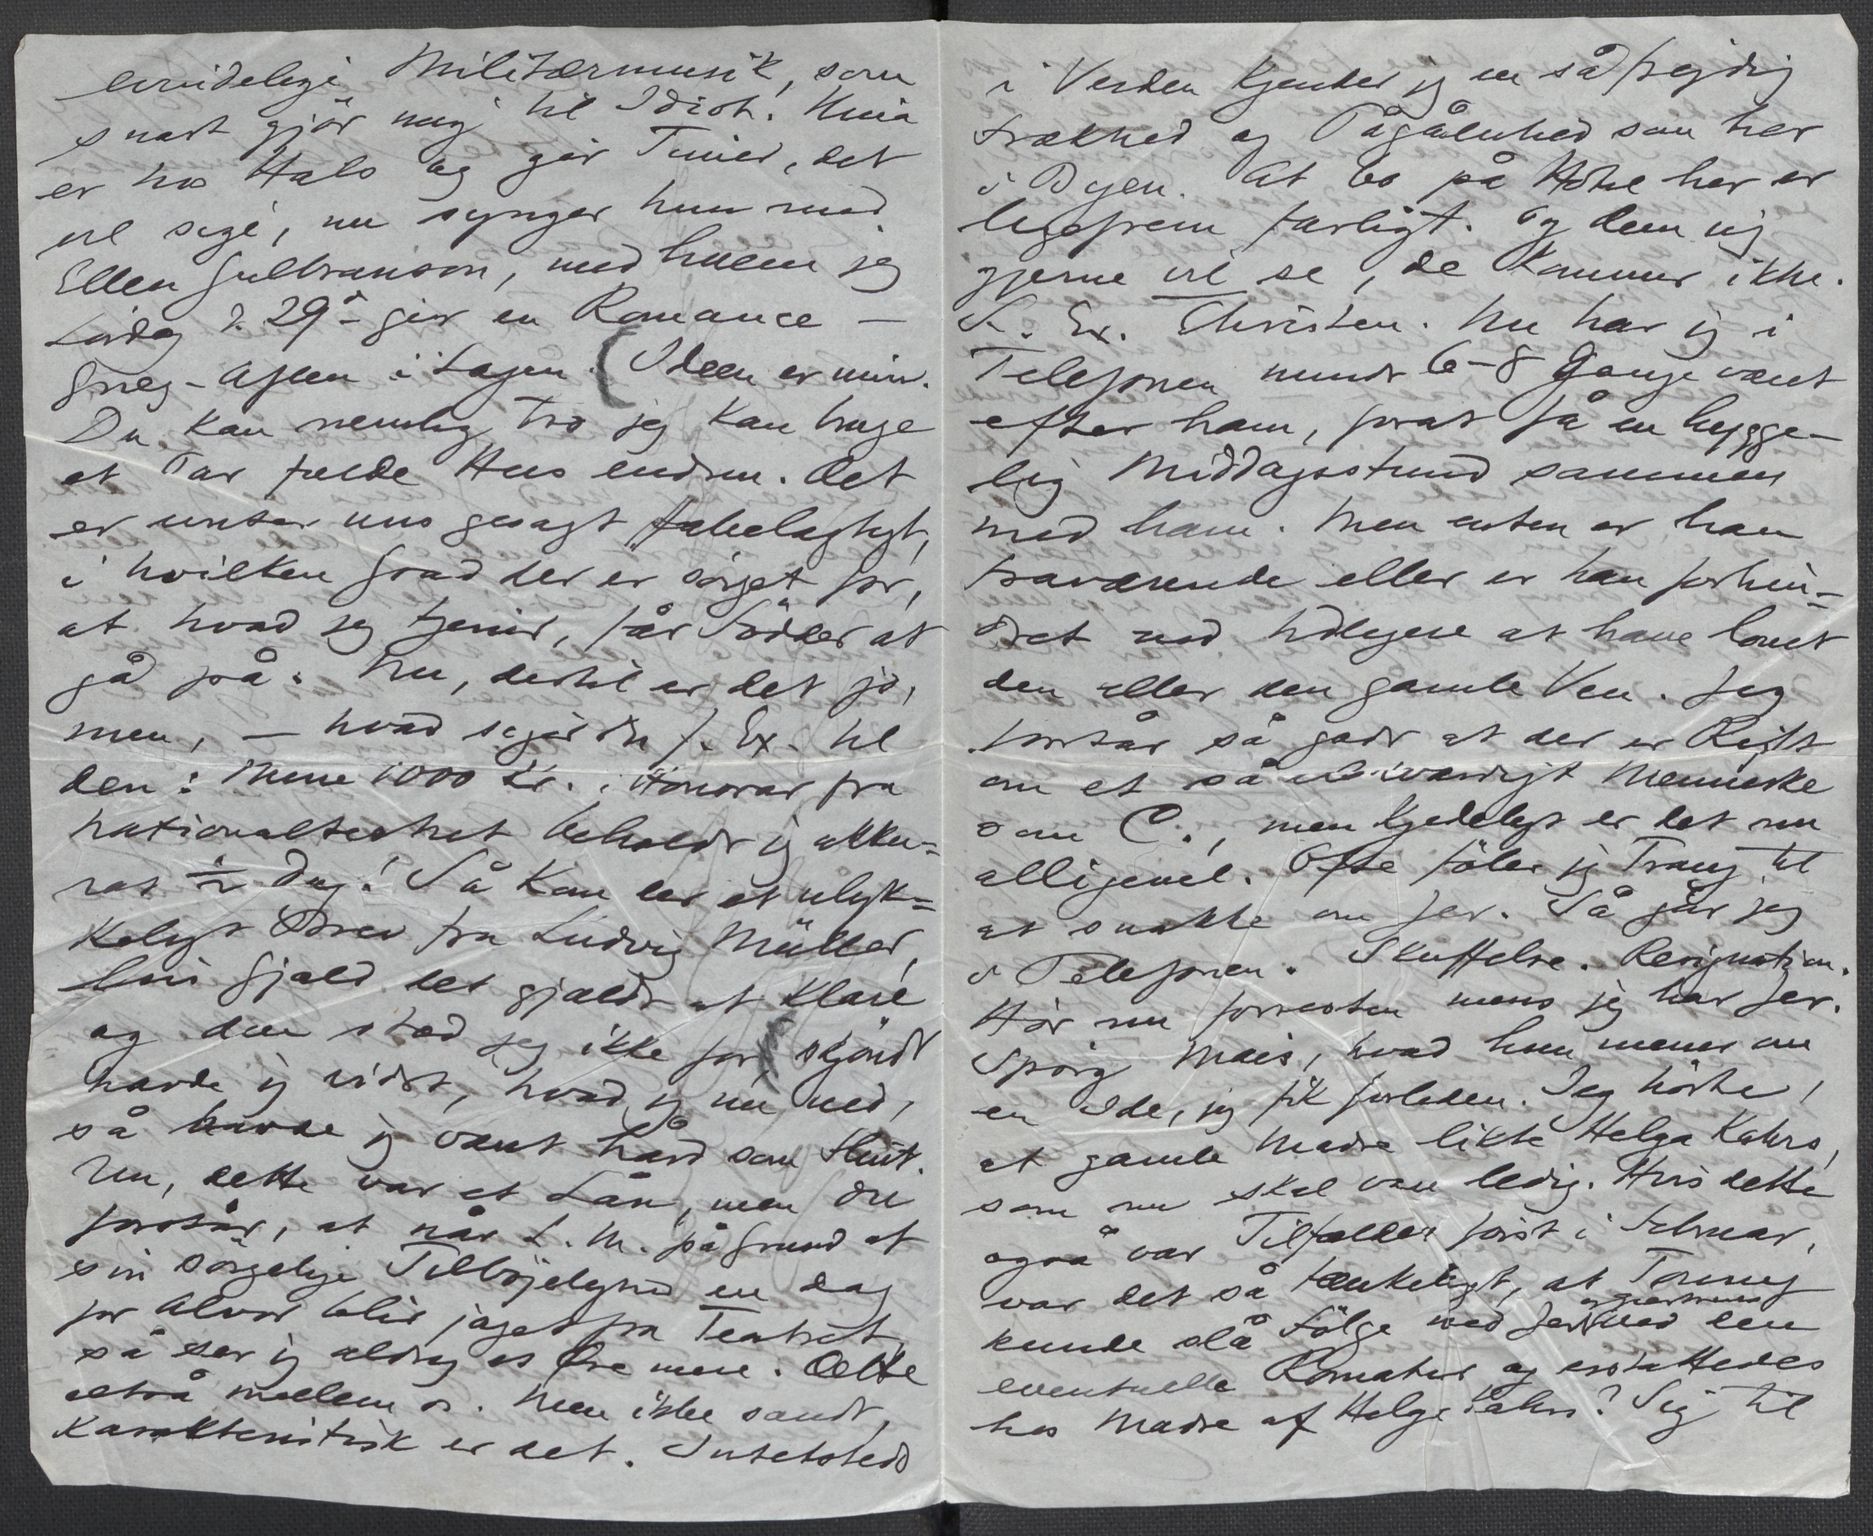 evindelige Militærmusik, som
snart gjör mig til Idiot. Nina
er hos Hals og gir Timer, det
vil sige, nu synger hun med
Ellen Gulbranson, med hvem jeg
Lördag d. 29de gir en Romance –
Grieg-Aften i Logen. (Ideen er min.
Du kan nemlig tro jeg kan bruge
et Par fulde Hus endnu. Det
er unter uns gesagt fabelagtigt,
i hvilken Grad der er sörget for,
at hvad jeg tjener, får Födder at
gå på. Nu, dertil er det jo,
men, – hvad siger Du f. Ex. til
den: Mine 1000 Kr. i Honorar fra
Nationalteatret beholdt jeg akku=
rat ½ Dag! Så kom der et ulyk=
keligt Brev fra Ludvig Müller,
hvis Gjæld det gjaldt at klare
og den stod jeg ikke for, skjöndt
havde jeg vidst, hvad jeg nu ved,
så havde jeg været hård som Flint.
Nu, dette var et Lån, men Du
forstår, at når L. M. på Grund af
sin sörgelige Tilböjelighed en Dag
for Alvor blir jaget fra Teatret,
så ser jeg aldrig et Öre mere. Dette
altså mellem os. Men ikke sandt,
karakteristisk er det. Intetsteds
i Verden kjender jeg en så frejdig
frækhed og Pågåenhed som her
i Byen. At bo på Hotel her er
ligefrem farligt. Og dem jeg
gjerne vil se, de kommer ikke.
F. Ex. Christen. Nu har jeg i
Telefonen mindst 6–8 Gange været
efter ham, forat få en hygge-
lig Middagsstund sammen
med ham. Men enten er han
fraværende eller er han forhin-
dret ved tidligere at have lovet
den eller den gamle Ven. Jeg
forstår så godt at der er Rift
om et så elskværdigt Menneske
som C., men kjedeligt er det nu
alligevel. Ofte föler jeg Trang til
at snakke om Jer. Så går jeg
i Telefonen. Skuffelse. Resignation.
Hör nu forresten mens jeg har Jer.
Spörg Mais, hvad hun mener om
en Ide, jeg fik forleden. Jeg hörte,
at gamle Madre likte Helga Kahrs,
som nu skal være ledig. Hvis dette
også var Tilfældet först i Februar,
var det så tænkeligt, at Tonny
kunde slå Fölge med Jer ved den
eventuelle Romatur og erstattedes
hos Madre af Helga Kahrs? Sig til